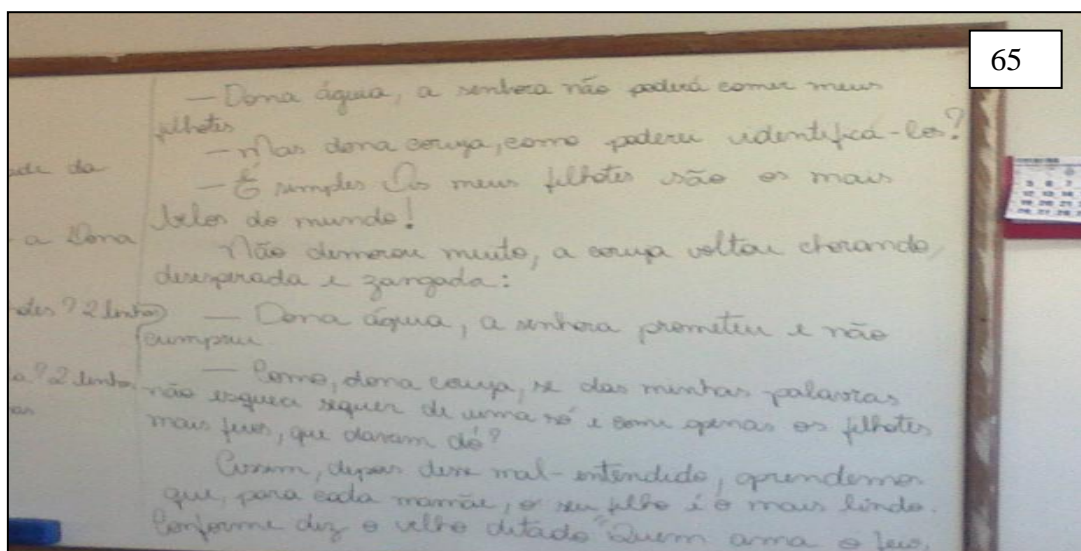 65
— Dona águia, a senhora não poderá comer meus
filhotes
— Mas dona coruja, como poderei identificá-los?
— É simples Os meus filhotes são os mais
belos do mundo!
Não demorou muito, a coruja voltou chorando,
desesperada e zangada:
— Dona águia, a senhora prometeu e não
cumpriu
— Como, dona coruja, se das minhas palavras
não esqueci sequer de uma só e comi apenas os filhotes
mais feios, que davam dó?
Assim, depois desse mal-entendido, aprendemos
que, para cada mamãe, o seu filho é o mais lindo.
Conforme diz o velho ditado "Quem ama o feio,
da
a Dona
? 2 linhas
a? 2 linhas